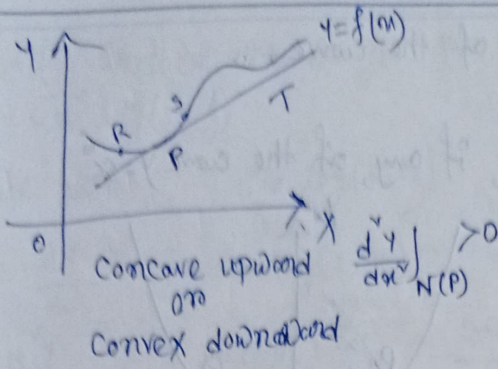 Y
y=f(x)
S
R
P
T
0
X
concave upword
d²y/dx²]N(P) >0
or
convex downword